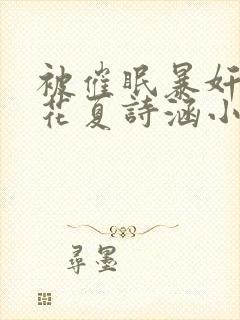 被催眠暴奸
花夏诗涵小
寻墨